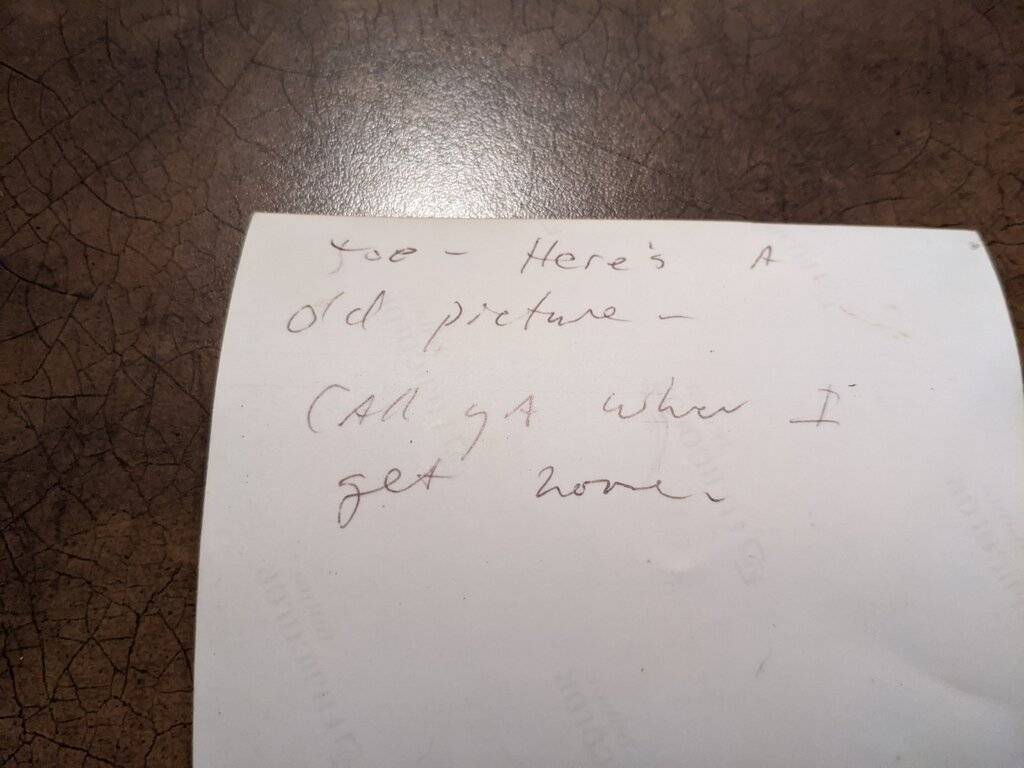 Joe - Here's A
old picture -
CAll yA when I
get home.